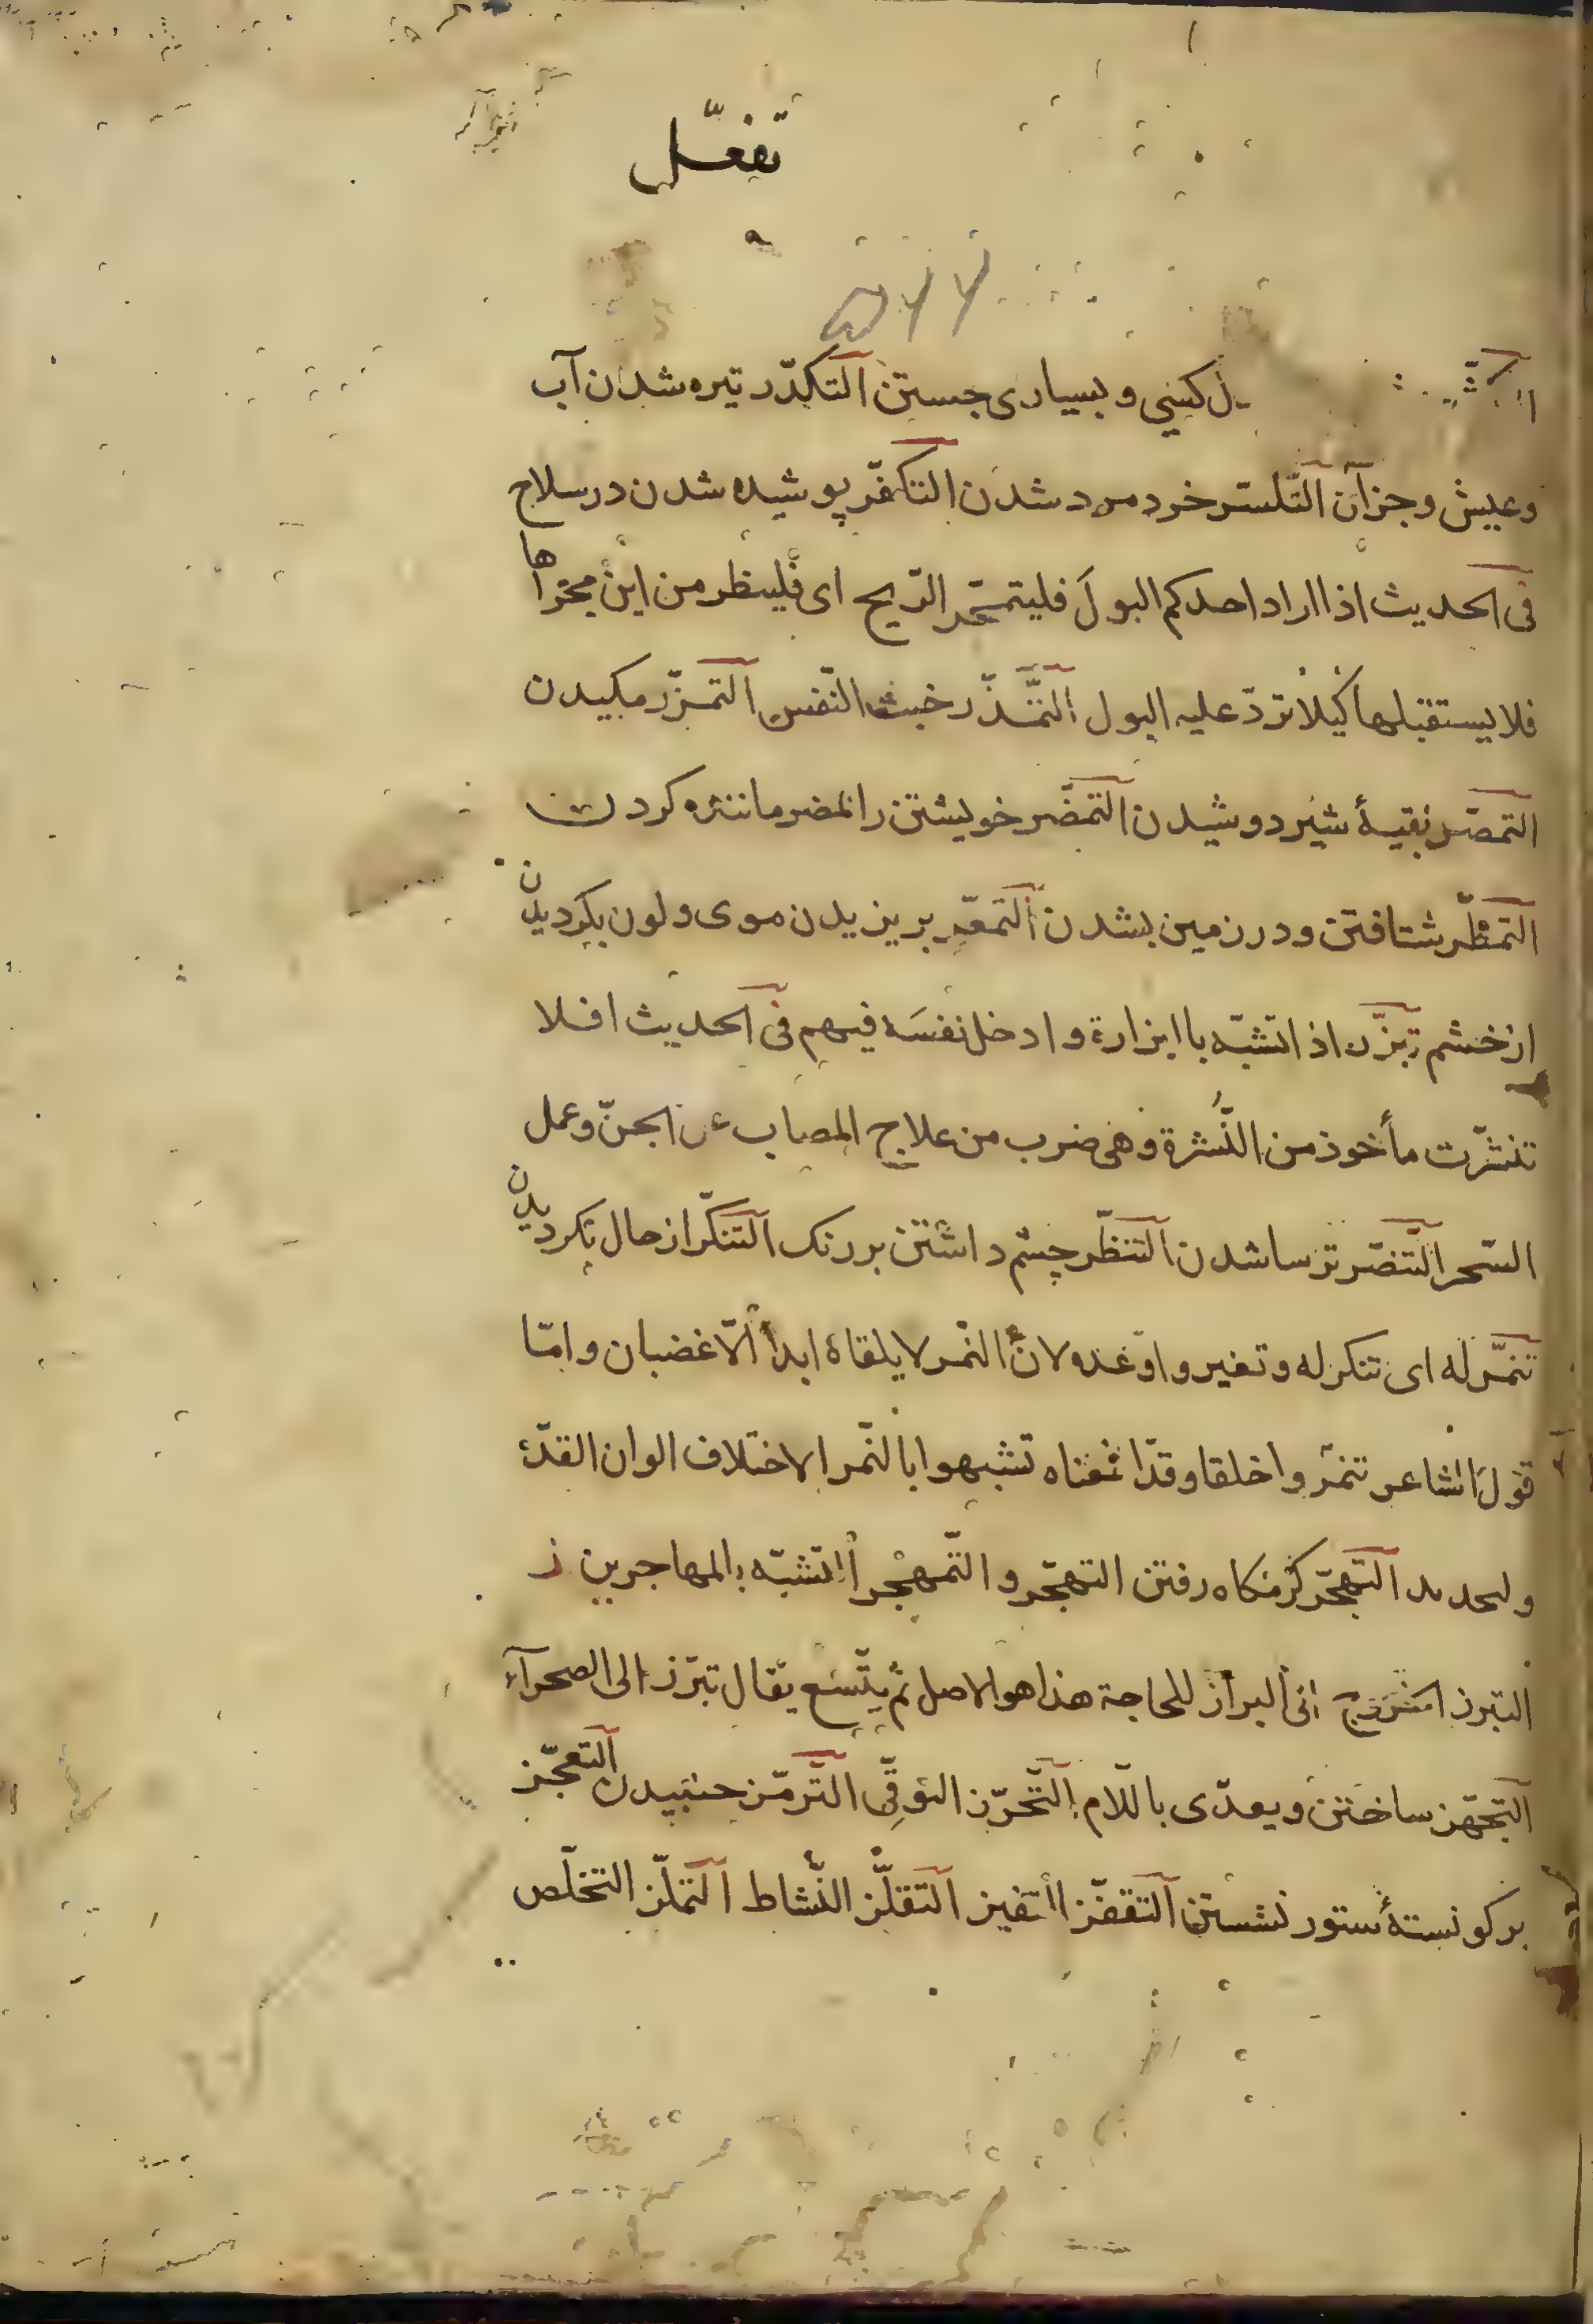 تفعّل
كسى و بسيارى جستن التكدّر تيره شدن آب
وعيش وجزآن التلستر خرد مرد شدن التكفّر پوشيده شدن در سلاح
فى الحديث اذا اراد احدكم البولَ فليتمخّر الرّيح اى فلينظر من اين مجراها
فلا يستقبلها كيلا تردّ عليه البول التمذّر خبث النّفس التمزّر مكيدن
التمصّر بقيۀ شير دوشيدن التمضّر خويشتن را بمضر ماننده كردن
التمطّر شتافتن ودر زمين بشدن التمعّر بريزيدن موى ولون بكرديدن
از خشم تبزّر اذا تشبّه باابزارة وادخل نفسَه فيهم فى الحديث افلا
تنشّرت مأخوذ من النُّشرة وهى ضرب من علاج المصاب عن الجنّ وعمل
السّحر التّنصّر ترسا شدن التنظّر چشم داشتن بررنک التنكّر از حال بكرديدن
تنمّر له اى تنكر له وتغير واوعده لانّ النّمر لا يلقاه ابدا الّا غضبان وامّا
قول الشاعر تنمّروا خلقا وقدّا فمعناه تشبهوا بالنّمر لاختلاف الوان القدّ
ولحديد التّهجّر كرمكاه رفتن التهجّر والتّمهْجر التشبّه بالمهاجرين ز
التبرز الخروج الى البراز للحاجة هذا هو الاصل ثم يتّسع يقال تبرّز الى الصحرآء
التجهّز ساختن ويعدّى باللّام التّحرّز التوقِّى التّرمّز جنبيدن التعجّز
بر كونستۀ ستور نشستن التقفّز التفيز التقلّز النّشاط التملّز التخلّص